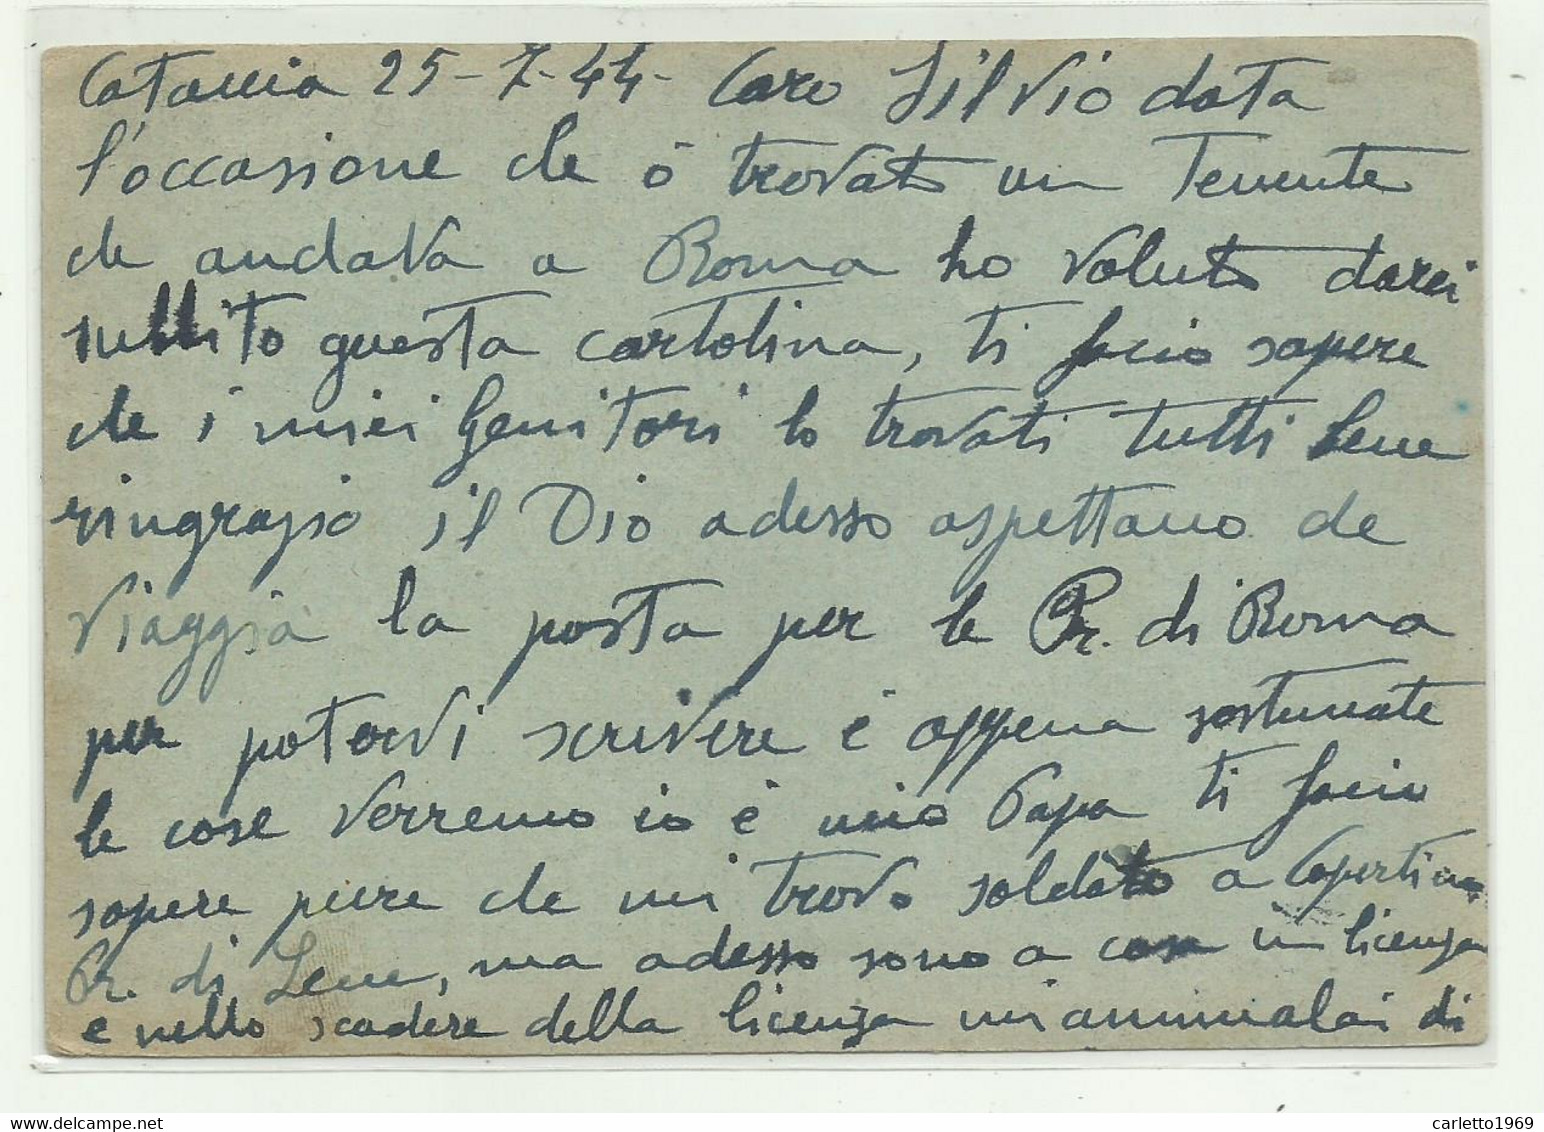 Catania 25-7-44- Caro Silvio data
l'occasione che ò trovato un Tenente
che andava a Roma ho voluto darci
subbito questa cartolina, ti facio sapere
che i miei Genitori lo trovati tutti bene
ringrazio il Dio adesso aspettano che
viaggia la posta per le Pr. di Roma
per potervi scrivere è appena
le cose verremo io è mio Papa ti facio
sapere pure che mi trovo soldato a Copertino
Pr. di Lecce, ma adesso sono a casa in licenza
e nello scadere della licenza mi ammalai di
carletto1969